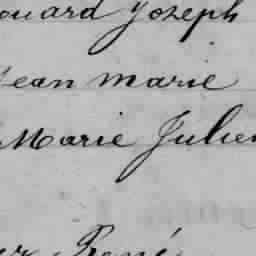 ouard Joseph
Jean marie
Marie Julien
René